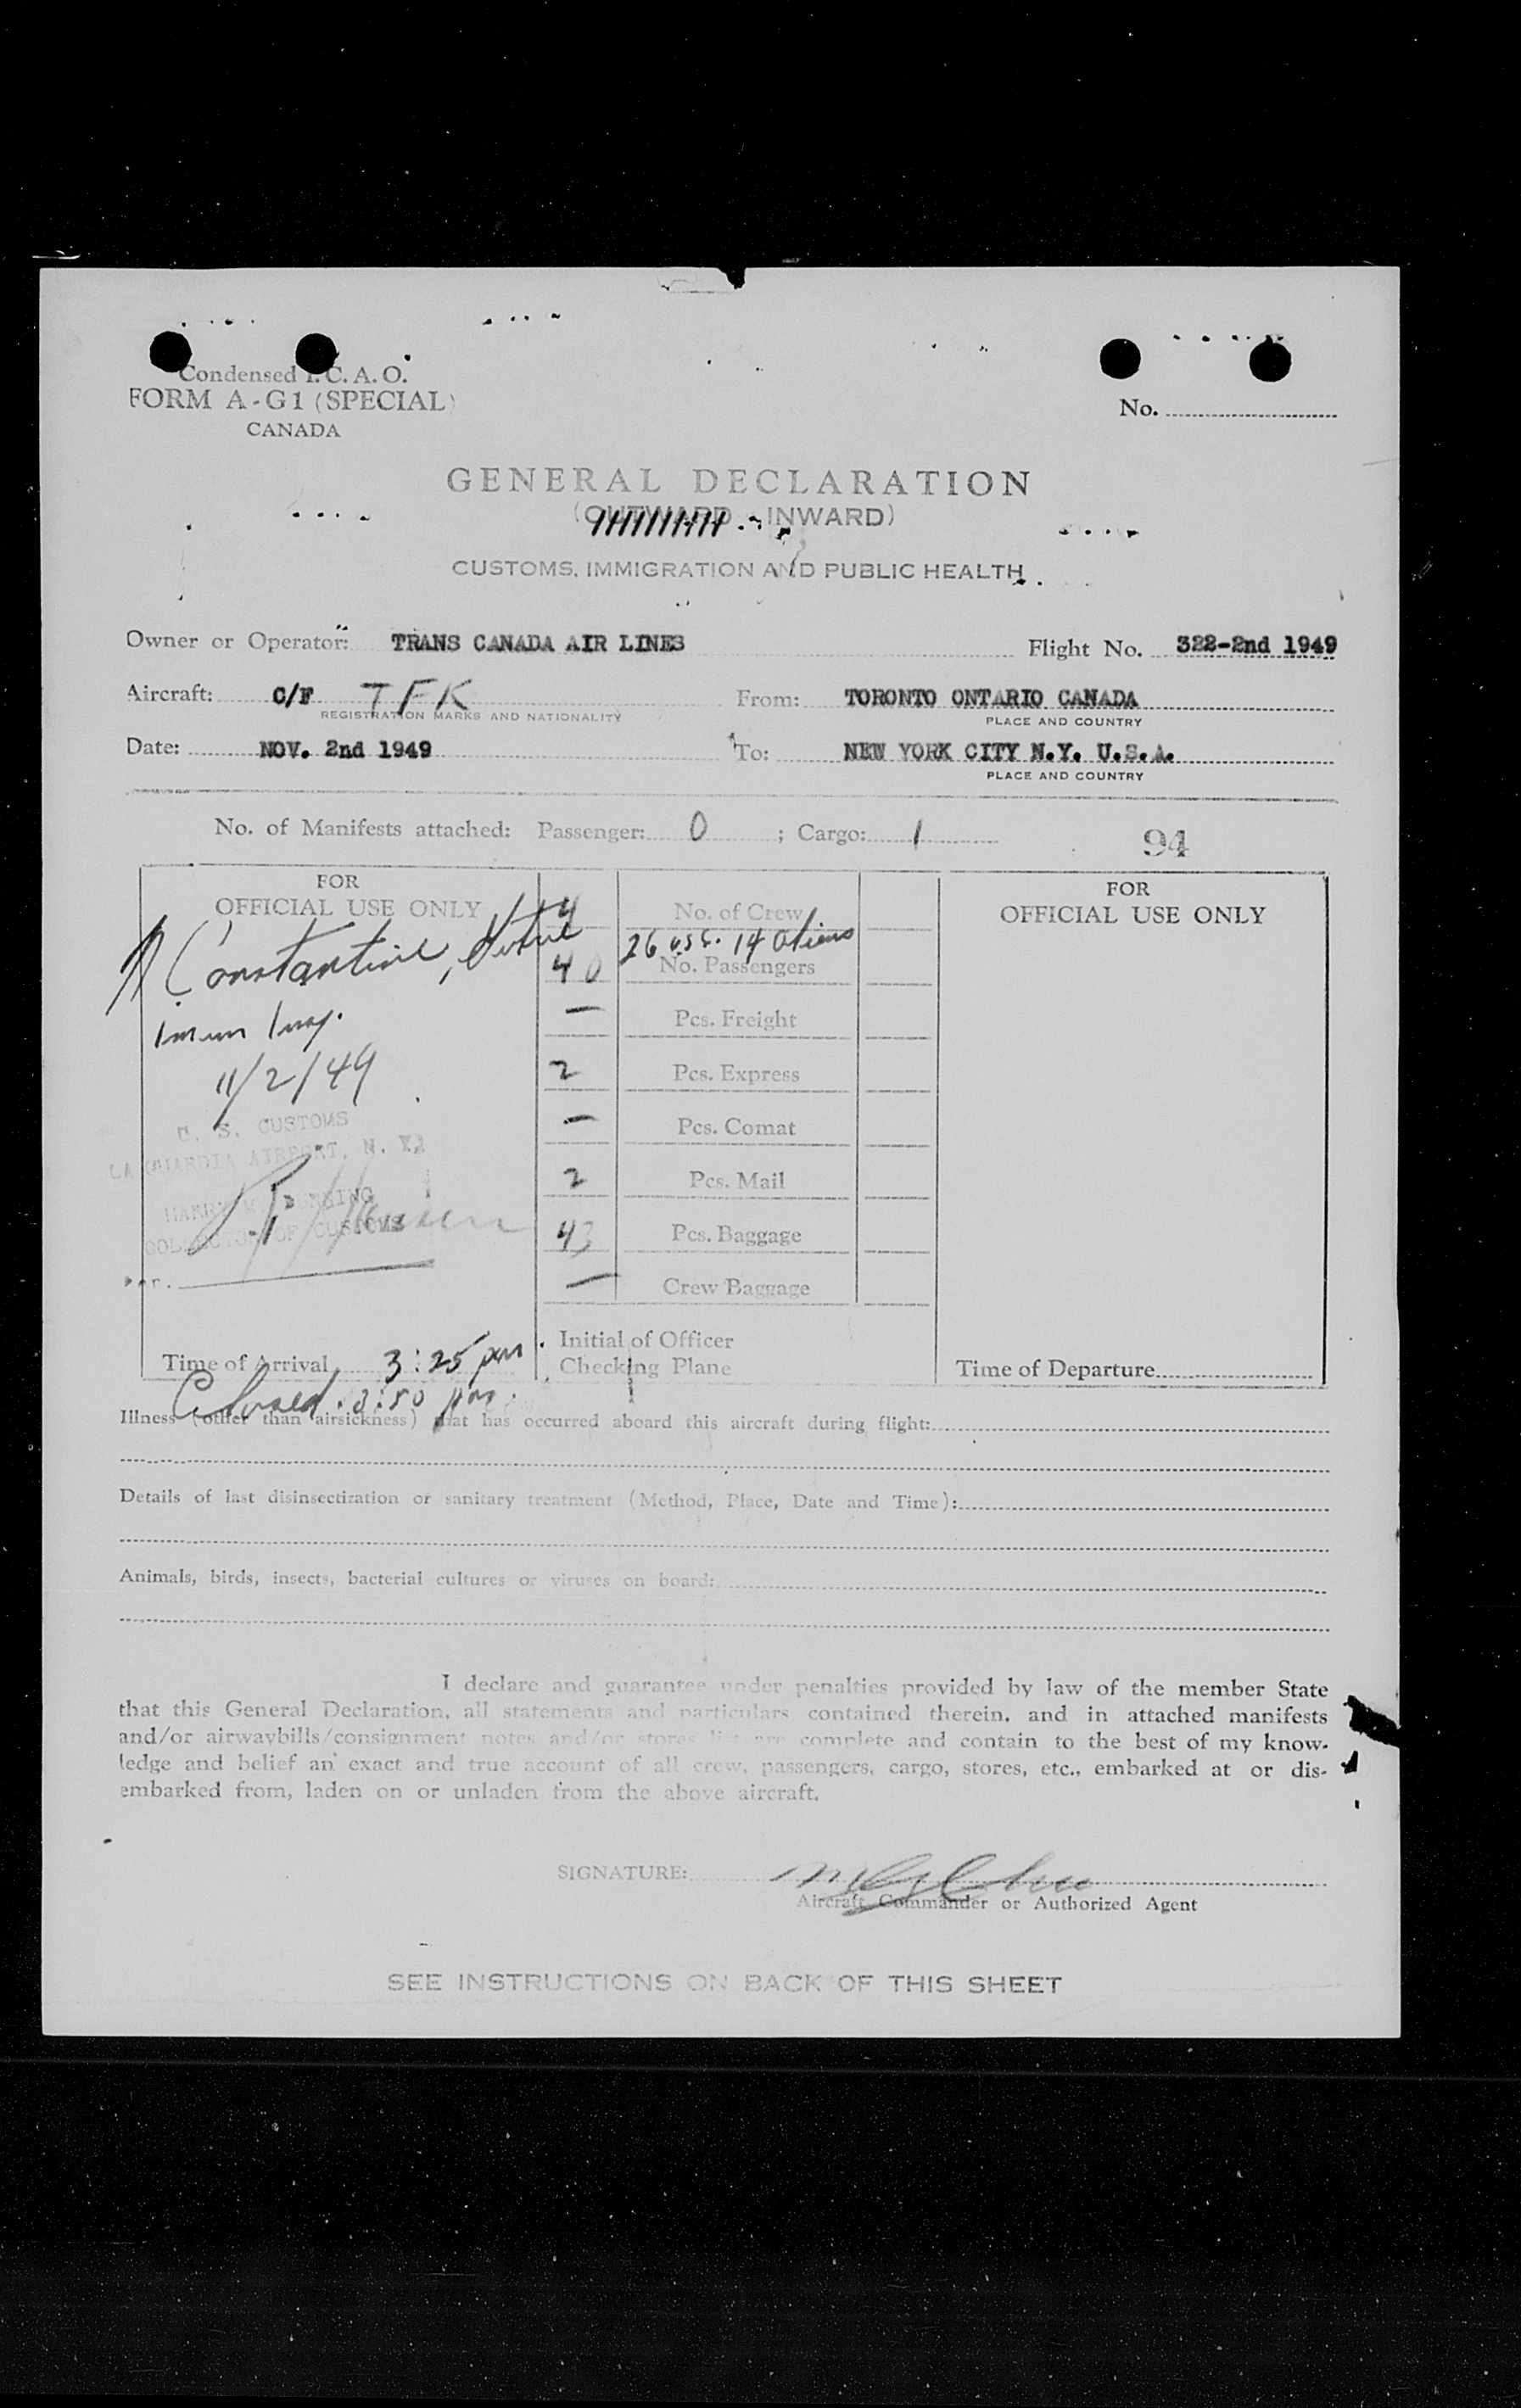 Condensed I. C. A. O.
FORM A-G1 (SPECIAL)
CANADA
No.
GENERAL DECLARATION
(OUTWARD - INWARD)
CUSTOMS, IMMIGRATION AND PUBLIC HEALTH
Owner or Operator: TRANS CANADA AIR LINES Flight No. 322-2nd 1949
Aircraft: C/F TFK From: TORONTO ONTARIO CANADA
REGISTRATION MARKS AND NATIONALITY PLACE AND COUNTRY
Date: NOV. 2nd 1949 To: NEW YORK CITY N.Y. U.S.A.
PLACE AND COUNTRY
No. of Manifests attached: Passenger: 0 ; Cargo: 1 94
FOR
OFFICIAL USE ONLY
Constantine,
11/2/49
U. S. CUSTOMS
LA GUARDIA AIRPORT, N. Y.
COLLECTOR OF CUSTOMS
Per.
Time of Arrival 3:25 pm
Closed
4 No. of Crew
26 USC. 14 Aliens
40 No. Passengers
— Pcs. Freight
2 Pcs. Express
— Pcs. Comat
2 Pcs. Mail
43 Pcs. Baggage
— Crew Baggage
Initial of Officer
Checking Plane
FOR
OFFICIAL USE ONLY
Time of Departure
Illness (other than airsickness) that has occurred aboard this aircraft during flight:
Details of last disinsectization or sanitary treatment (Method, Place, Date and Time):
Animals, birds, insects, bacterial cultures or viruses on board:
I declare and guarantee under penalties provided by law of the member State
that this General Declaration, all statements and particulars contained therein, and in attached manifests
and/or airwaybills/consignment notes and/or stores list are complete and contain to the best of my know-
ledge and belief an exact and true account of all crew, passengers, cargo, stores, etc., embarked at or dis-
embarked from, laden on or unladen from the above aircraft.
SIGNATURE:
Aircraft Commander or Authorized Agent
SEE INSTRUCTIONS ON BACK OF THIS SHEET